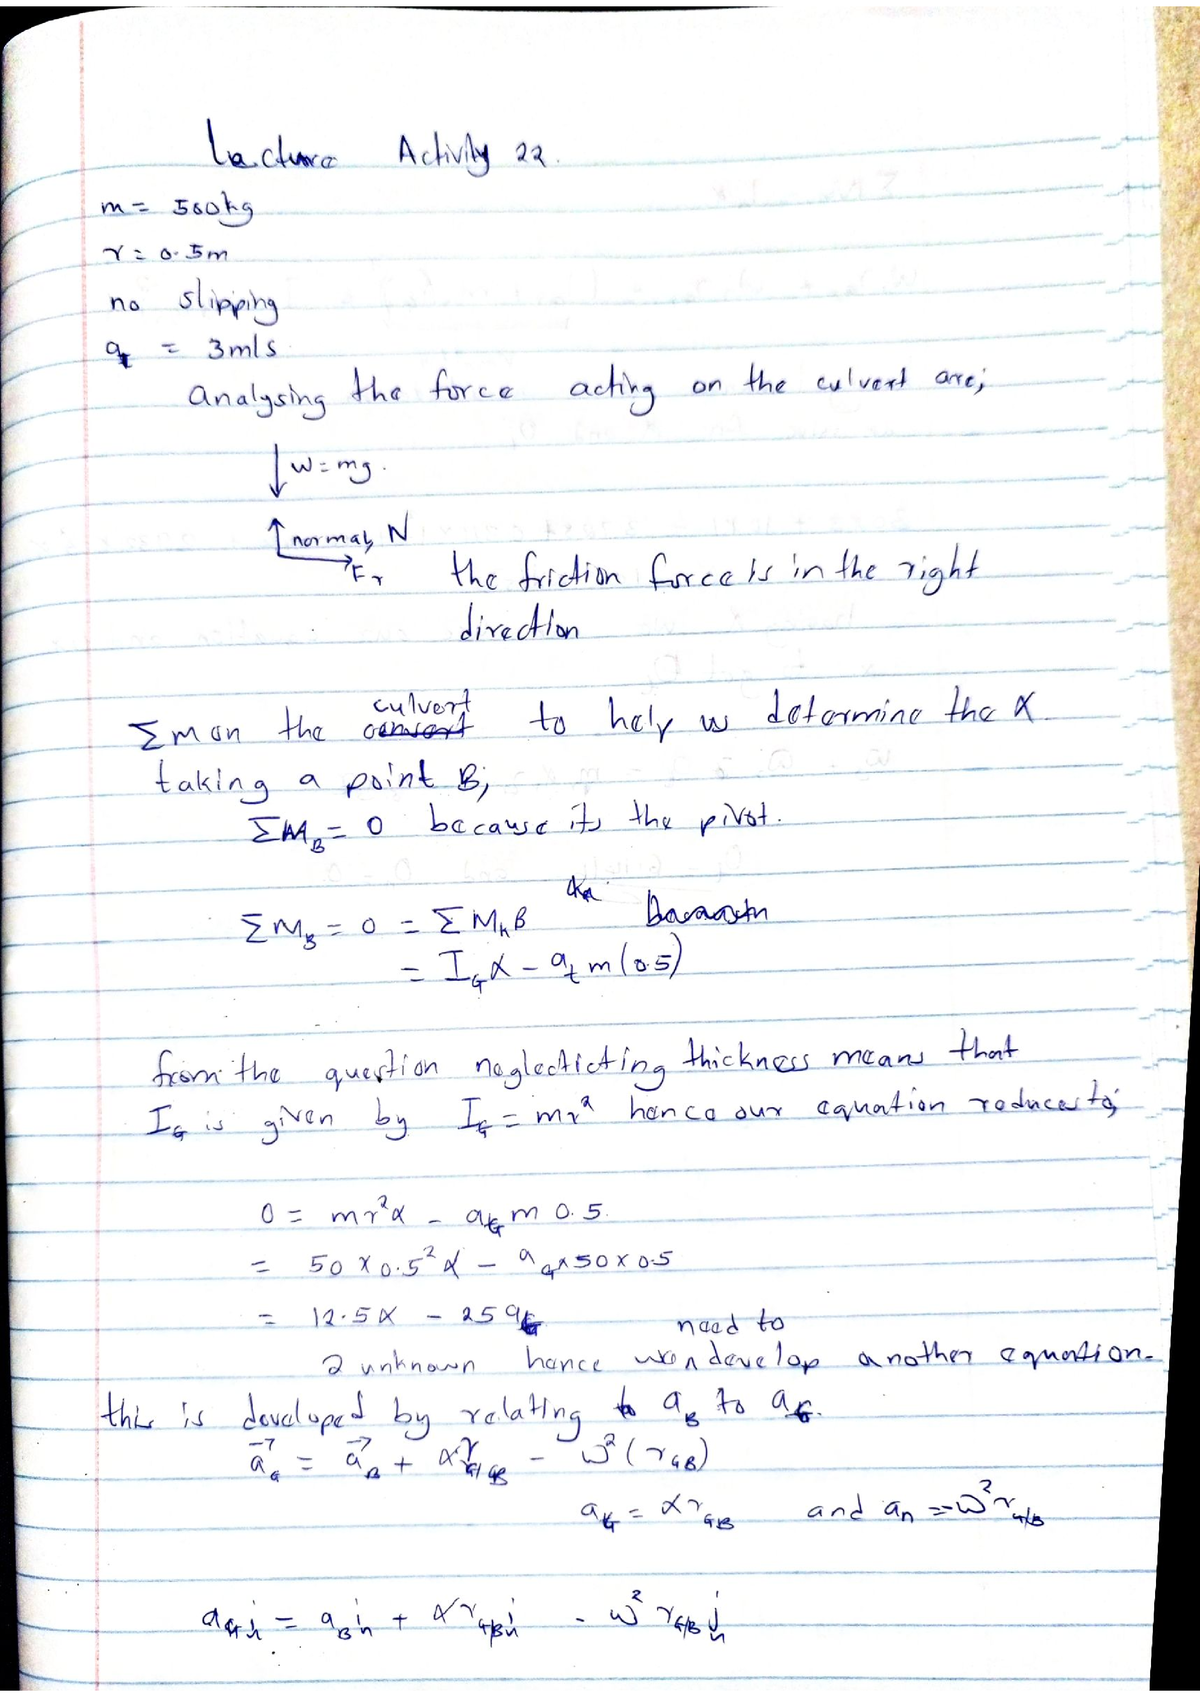 Lecture Activity 22.
m = 500kg
r = 0.5m
no slipping
a_t = 3m/s
Analysing the force acting on the culvert are;
↓ W = mg.
↑ normal, N
→ Fr the friction force is in the right
direction
culvert
ΣM on the to help us determine the α
taking a point B;
ΣM_B = 0 because its the pivot.
ΣM_B = 0 = ΣM_k B
= I_G α - a_t m(0.5)
from the question neglecticting thickness means that
I_G is given by I_G = mr² hence our equation reduces to;
0 = mr²α - a_G m 0.5.
= 50 x 0.5² α - a_G x 50 x 0.5
= 12.5α - 25 a_G
need to
2 unknown hence we develop another equation.
this is developed by relating a_B to a_G.
a⃗_G = a⃗_B + αr_G/B - ω²(r_GB)
a_G = αr_GB and a_n = -ω² r_G/B
a_G i = a_B i + αr_G/B i - ω² r_G/B j